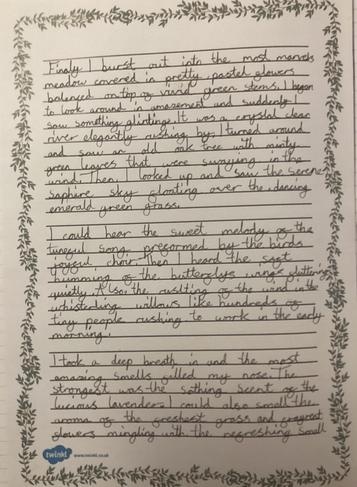 Finaly I burst out into the most marvels
meadow covered in pretty pastel flowers
balenced on top of vivid green stems. I began
to look around in amazement and suddenly I
saw something glinting. It was a crystal clear
river elegantly rushing by. I turned around
and saw an old oak tree with minty
green leaves that were swaying in the
wind. Then I looked up and saw the serene
saphire sky floating over the dancing
emerald green grass.
I could hear the sweet melody of the
tuneful song preformed by the birds
joyful choir. Then I heard the soft
humming of the butterflys wings fluttering
quietly. Also the ruslting of the wind in the
whisterling willows like hundreds of
tiny people rushing to work in the early
morning.
I took a deep breath in and the most
amazing smells filled my nose. The
strongest was the sothing scent of the
lucious lavender. I could also smell the
aroma of the freshest grass and fragrent
flowers mingling with the refreshing smell
twinkl www.twinkl.co.uk